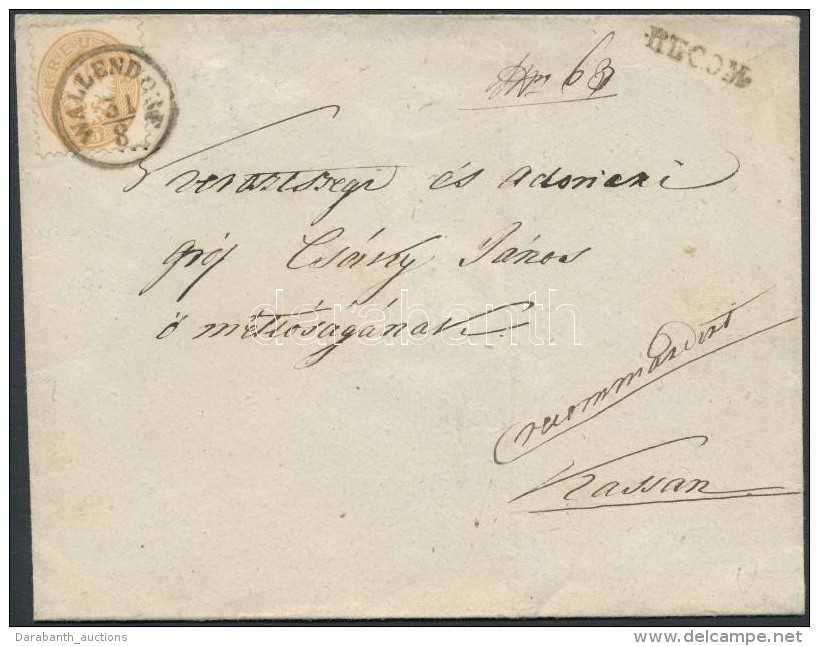 WALLENDORF
31/8
RECOM.
No 63
és adorjani
gróf Csáky János
ő méltóságának
darabanth
recommandirt
Kassan
Darabanth_auctions
www.delcampe.net